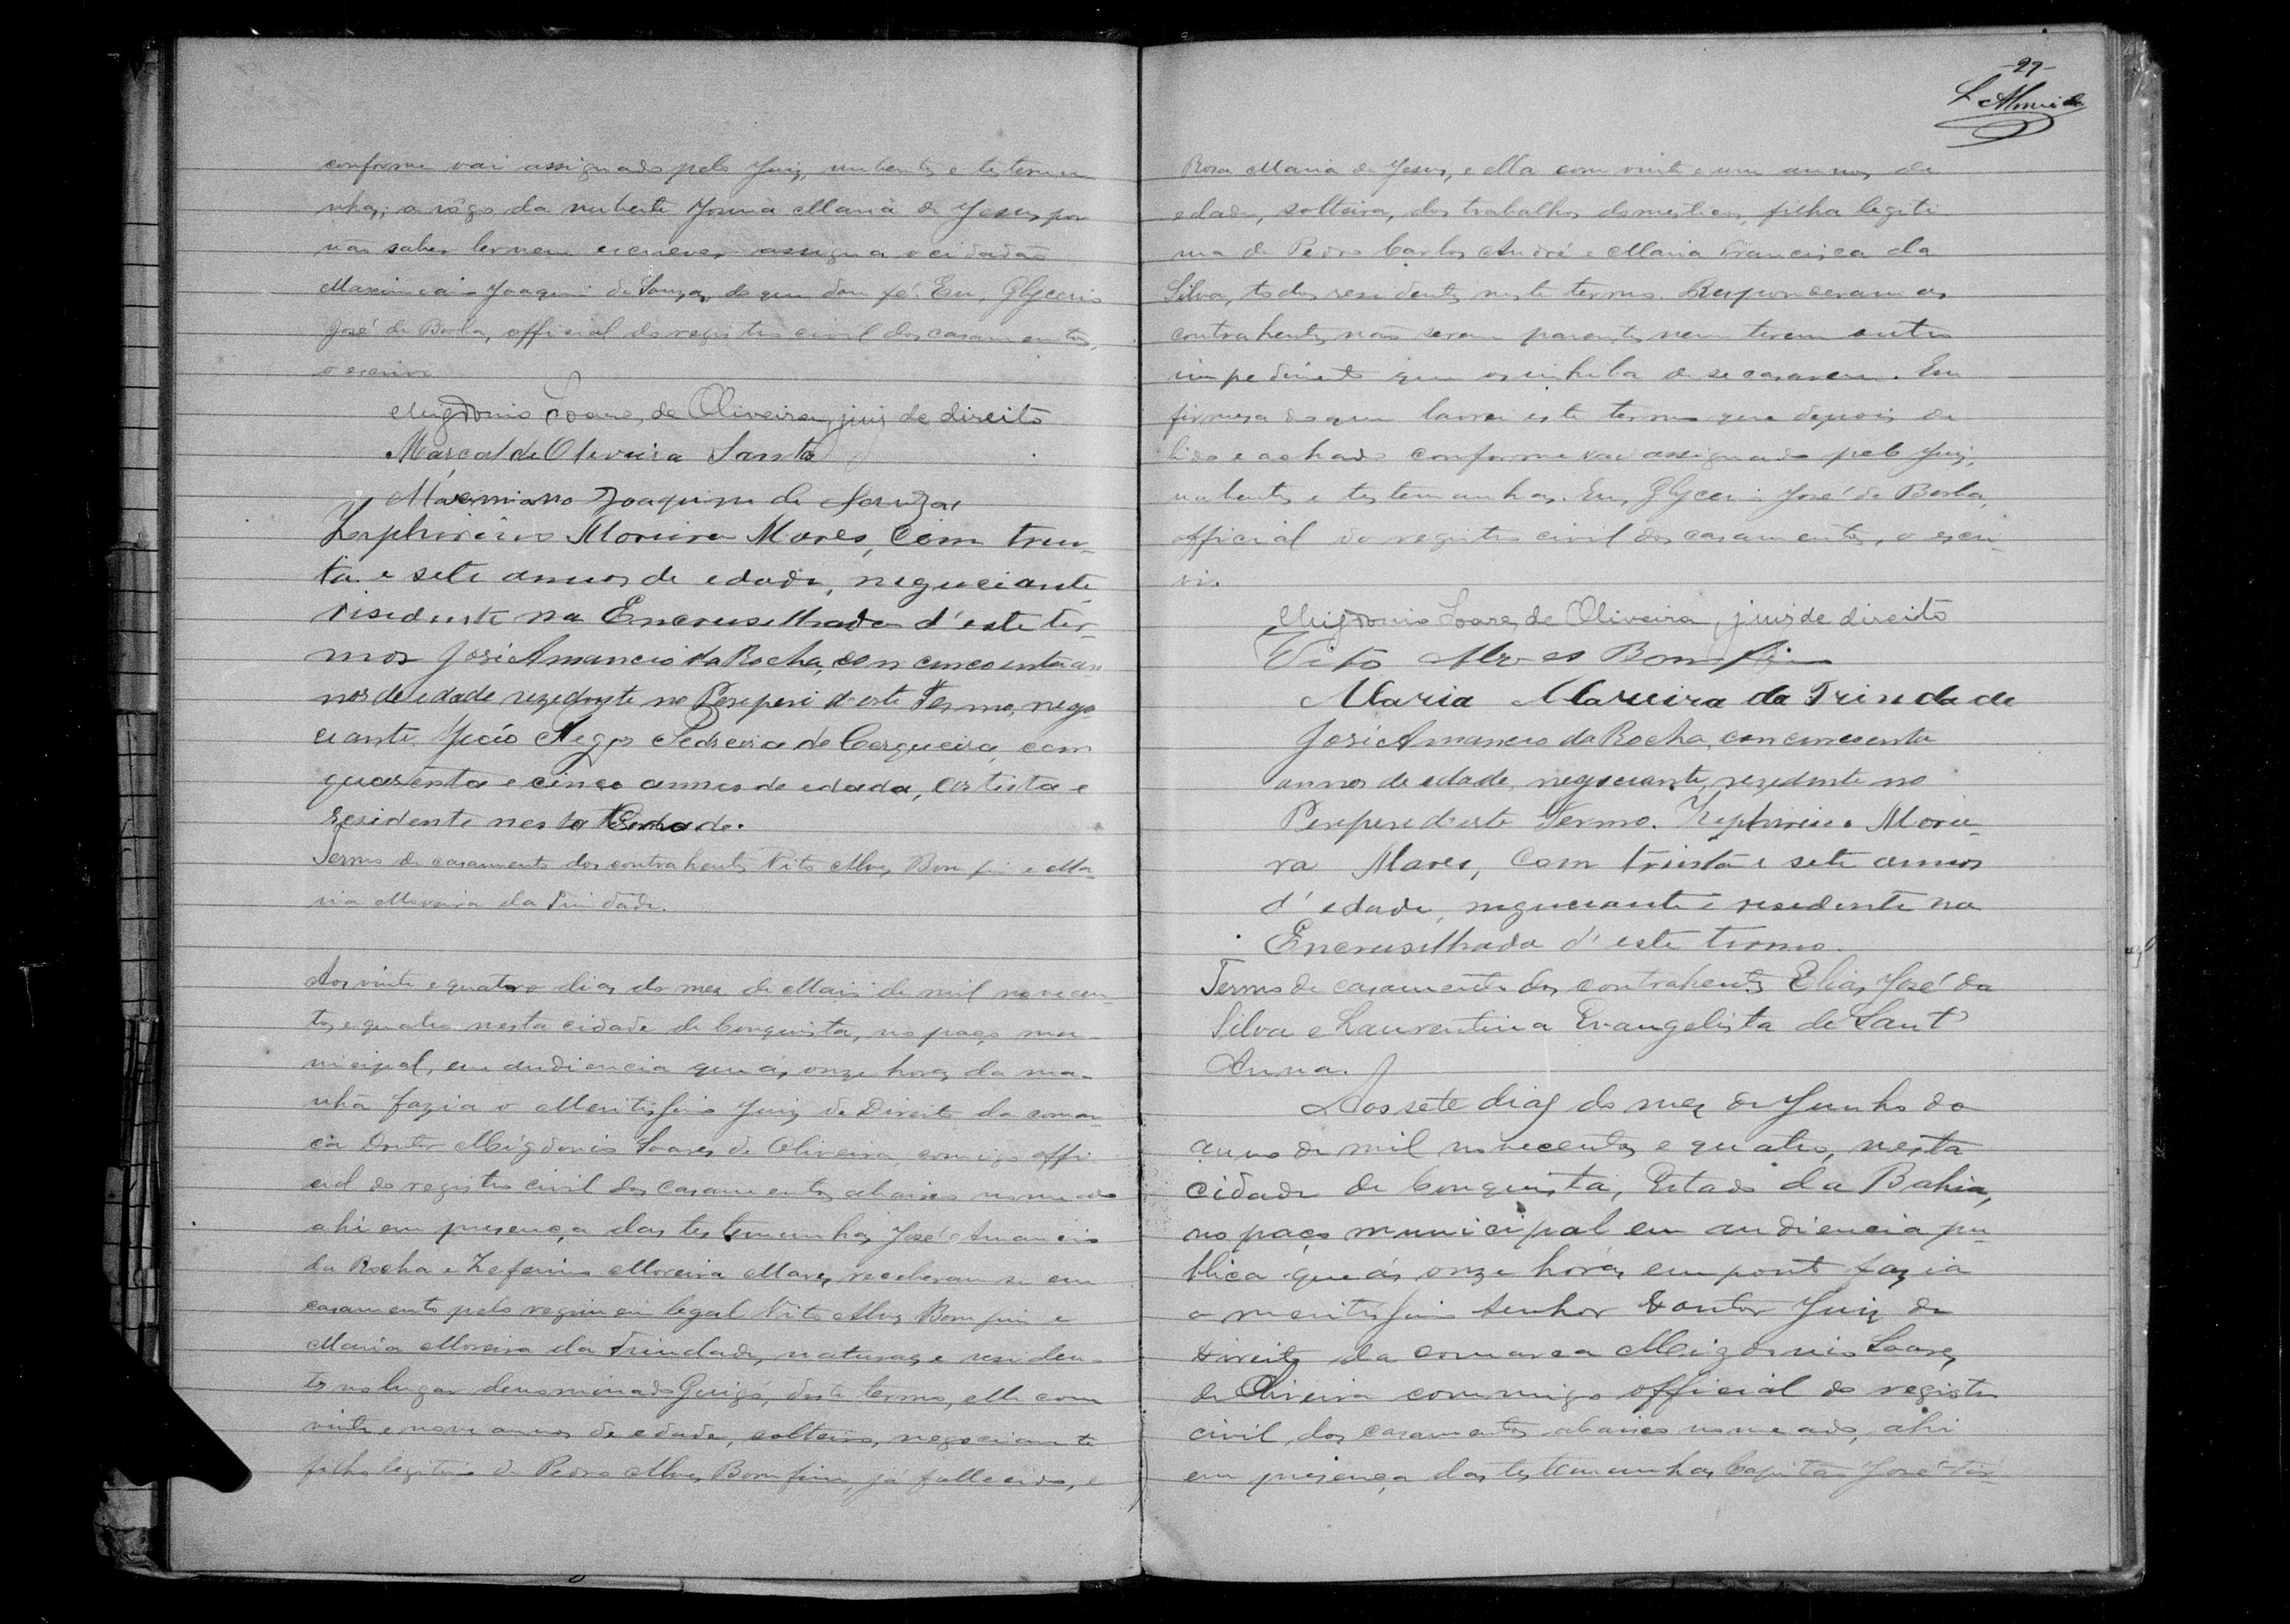 conforme vai assignado pelo Juiz, nubentes e testemu
nhas; a rôgo da nubente Maria de Jesus, por
não saber ler nem escrever assigna o cidadão
Maximiano Joaquim de Souza, do que dou fé. Eu, Glycerio
José de Borba, official do registro civil dos casamentos,
o escrivi
Migdonio Soares de Oliveira, juiz de direito
Marcal de Oliveira Santos
Maxemiano Joaquim de Souza
Zephirino Moreira Mares, com trin-
ta e sete annos de edade, neguciante
risidente na Encrusilhada d'este ter-
mo José Amancio da Rocha, con cincoenta an
nos de edade rezedente no Periperi d'este Termo, nego
ciante. Pedreira de Cerqueira, com
quarenta e cinco annos de edade, artista e
residente nesta Cidade.
Termo de casamento dos contrahentes Vito Alves Bomfim e Ma-
ria Moreira da Trindade.
Aos vinte e quatro dias do mez de Maio de mil novecen-
tos e quatro nesta cidade de Conquista, no paço mu-
nicipal, em audiencia que ás onze horas da ma-
nhã fazia o Meritissimo Juiz de Direito da comar-
ca Doutor Migdonio Soares de Oliveira, comigo offi-
cial do registro civil dos casamentos abaixo nomeado
ahi em presença das testemunhas José Amancio
da Rocha e Zeferino Moreira Mares, receberam-se em
casamento pelo regimen legal Vito Alves Bomfim e
Maria Moreira da Trindade, naturaes e residen-
tes no lugar denominado Guigó, deste termo, elle com
vinte e nove annos de edade, solteiro, negociante
filho legitimo de Pedro Alves Bomfim, já fallecido, e
-27-
L Almeida
Rosa Maria de Jesus, e ella com vinte e um annos de
edade, solteira, dos trabalhos domesticos, filha legiti
ma de Pedro Carlos André e Maria Francisca da
Silva, todos residentes neste termo. Responderam os
contrahentes não serem parentes nem terem outro
impedimento que os inhiba de se casarem. Em
firmeza do que lavrei este termo que depois de
lido e achado conforme vae assignado pelo Juiz,
nubentes e testemunhas. Eu, Glycerio José de Borba,
official do registro civil dos casamentos, o escri-
vi.
Migdonio Soares de Oliveira, juiz de direito
Vito Alves Bomfim
Maria Mareira da Trindade
José Amancio da Rocha, con cincoenta
annos de edade, negociante, rezedente no
Periperi d'este Termo. Zephirino Morei-
ra Mares, com trinta e sete annos
d'edade, neguciante e resedente na
Encrusilhada d'este termo.
Termo de casamento dos contrahentes Elias José da
Silva e Laurentina Evangelista de Sant'
Anna.
Aos sete dias do mez de Junho do
anno de mil novecentos e quatro, nesta
cidade de Conquista, Estado da Bahia,
no paço municipal em audiencia pu-
blica que ás onze horas em ponto fazia
o meritissimo Senhor Doutor Juiz de
Direito da comarca Migdonio Soares
de Oliveira commigo official do registro
civil dos casamentos abaixo nomeado, ahi
em presença das testemunhas Capitão José